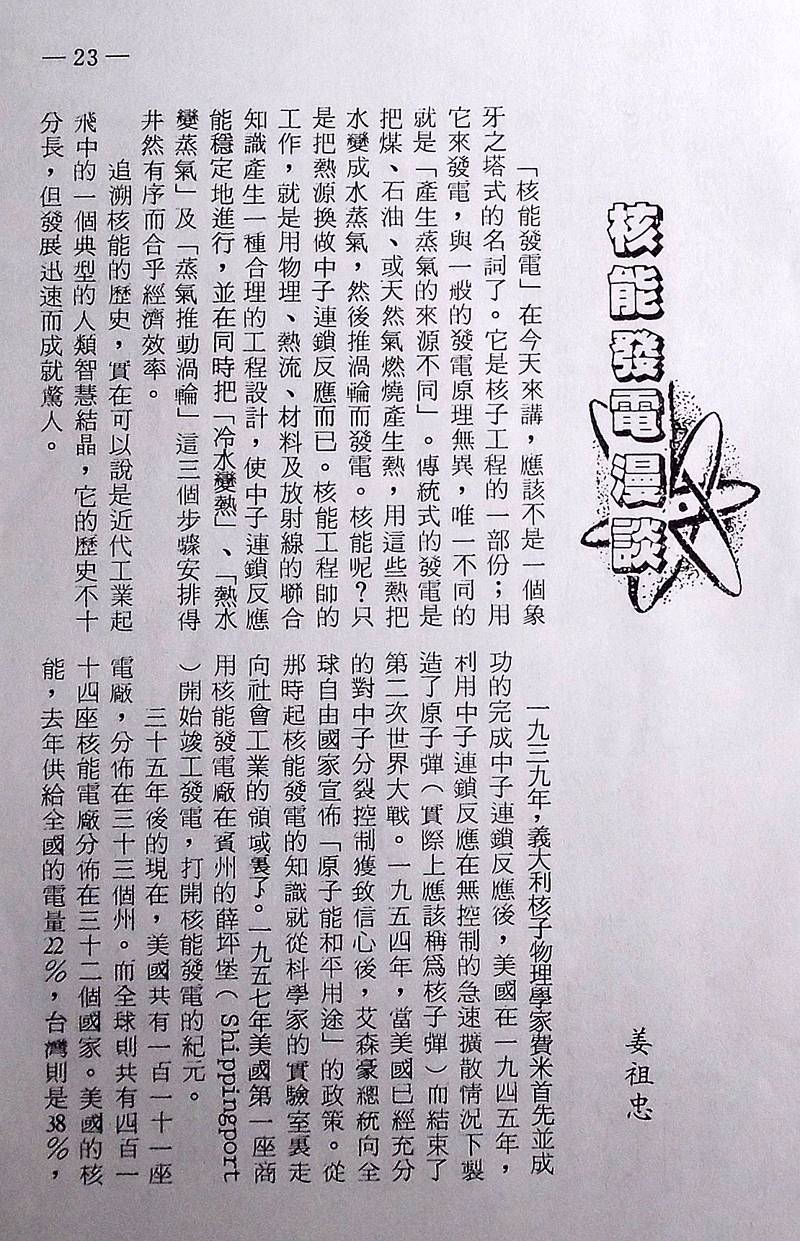 —23—
核能發電漫談
姜祖忠
「核能發電」在今天來講，應該不是一個象
牙之塔式的名詞了。它是核子工程的一部份；用
它來發電，與一般的發電原理無異，唯一不同的
就是「產生蒸氣的來源不同」。傳統式的發電是
把煤、石油、或天然氣燃燒產生熱，用這些熱把
水變成水蒸氣，然後推渦輪而發電。核能呢？只
是把熱源換做中子連鎖反應而已。核能工程師的
工作，就是用物理、熱流、材料及放射線的聯合
知識產生一種合理的工程設計，使中子連鎖反應
能穩定地進行，並在同時把「冷水變熱」、「熱水
變蒸氣」及「蒸氣推動渦輪」這三個步驟安排得
井然有序而合乎經濟效率。
追溯核能的歷史，實在可以說是近代工業起
飛中的一個典型的人類智慧結晶，它的歷史不十
分長，但發展迅速而成就驚人。
一九三九年，義大利核子物理學家費米首先並成
功的完成中子連鎖反應後，美國在一九四五年，
利用中子連鎖反應在無控制的急速擴散情況下製
造了原子彈（實際上應該稱爲核子彈）而結束了
第二次世界大戰。一九五四年，當美國已經充分
的對中子分裂控制獲致信心後，艾森豪總統向全
球自由國家宣佈「原子能和平用途」的政策。從
那時起核能發電的知識就從科學家的實驗室裏走
向社會工業的領域裏了。一九五七年美國第一座商
用核能發電廠在賓州的薛坪堡（Shippingport
）開始竣工發電，打開核能發電的紀元。
三十五年後的現在，美國共有一百一十一座
電廠，分佈在三十三個州。而全球則共有四百一
十四座核能電廠分佈在三十二個國家。美國的核
能，去年供給全國的電量22%，台灣則是38%，